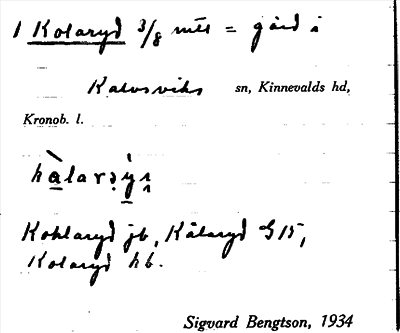 1 Kolaryd 3/8 mtl = gård i
Kalvsviks sn, Kinnevalds hd,
Kronob. l.
Kohlaryd jb, Kålaryd G15,
Kolaryd hb.
Sigvard Bengtson, 1934